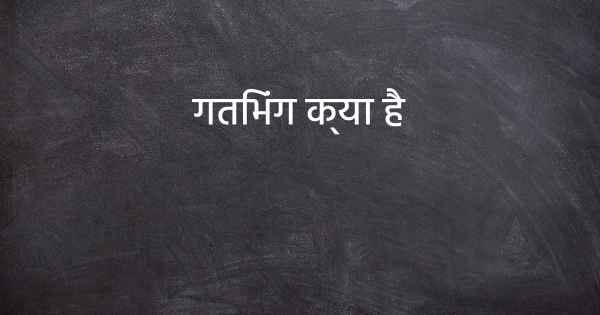 गतिभंग क्या है